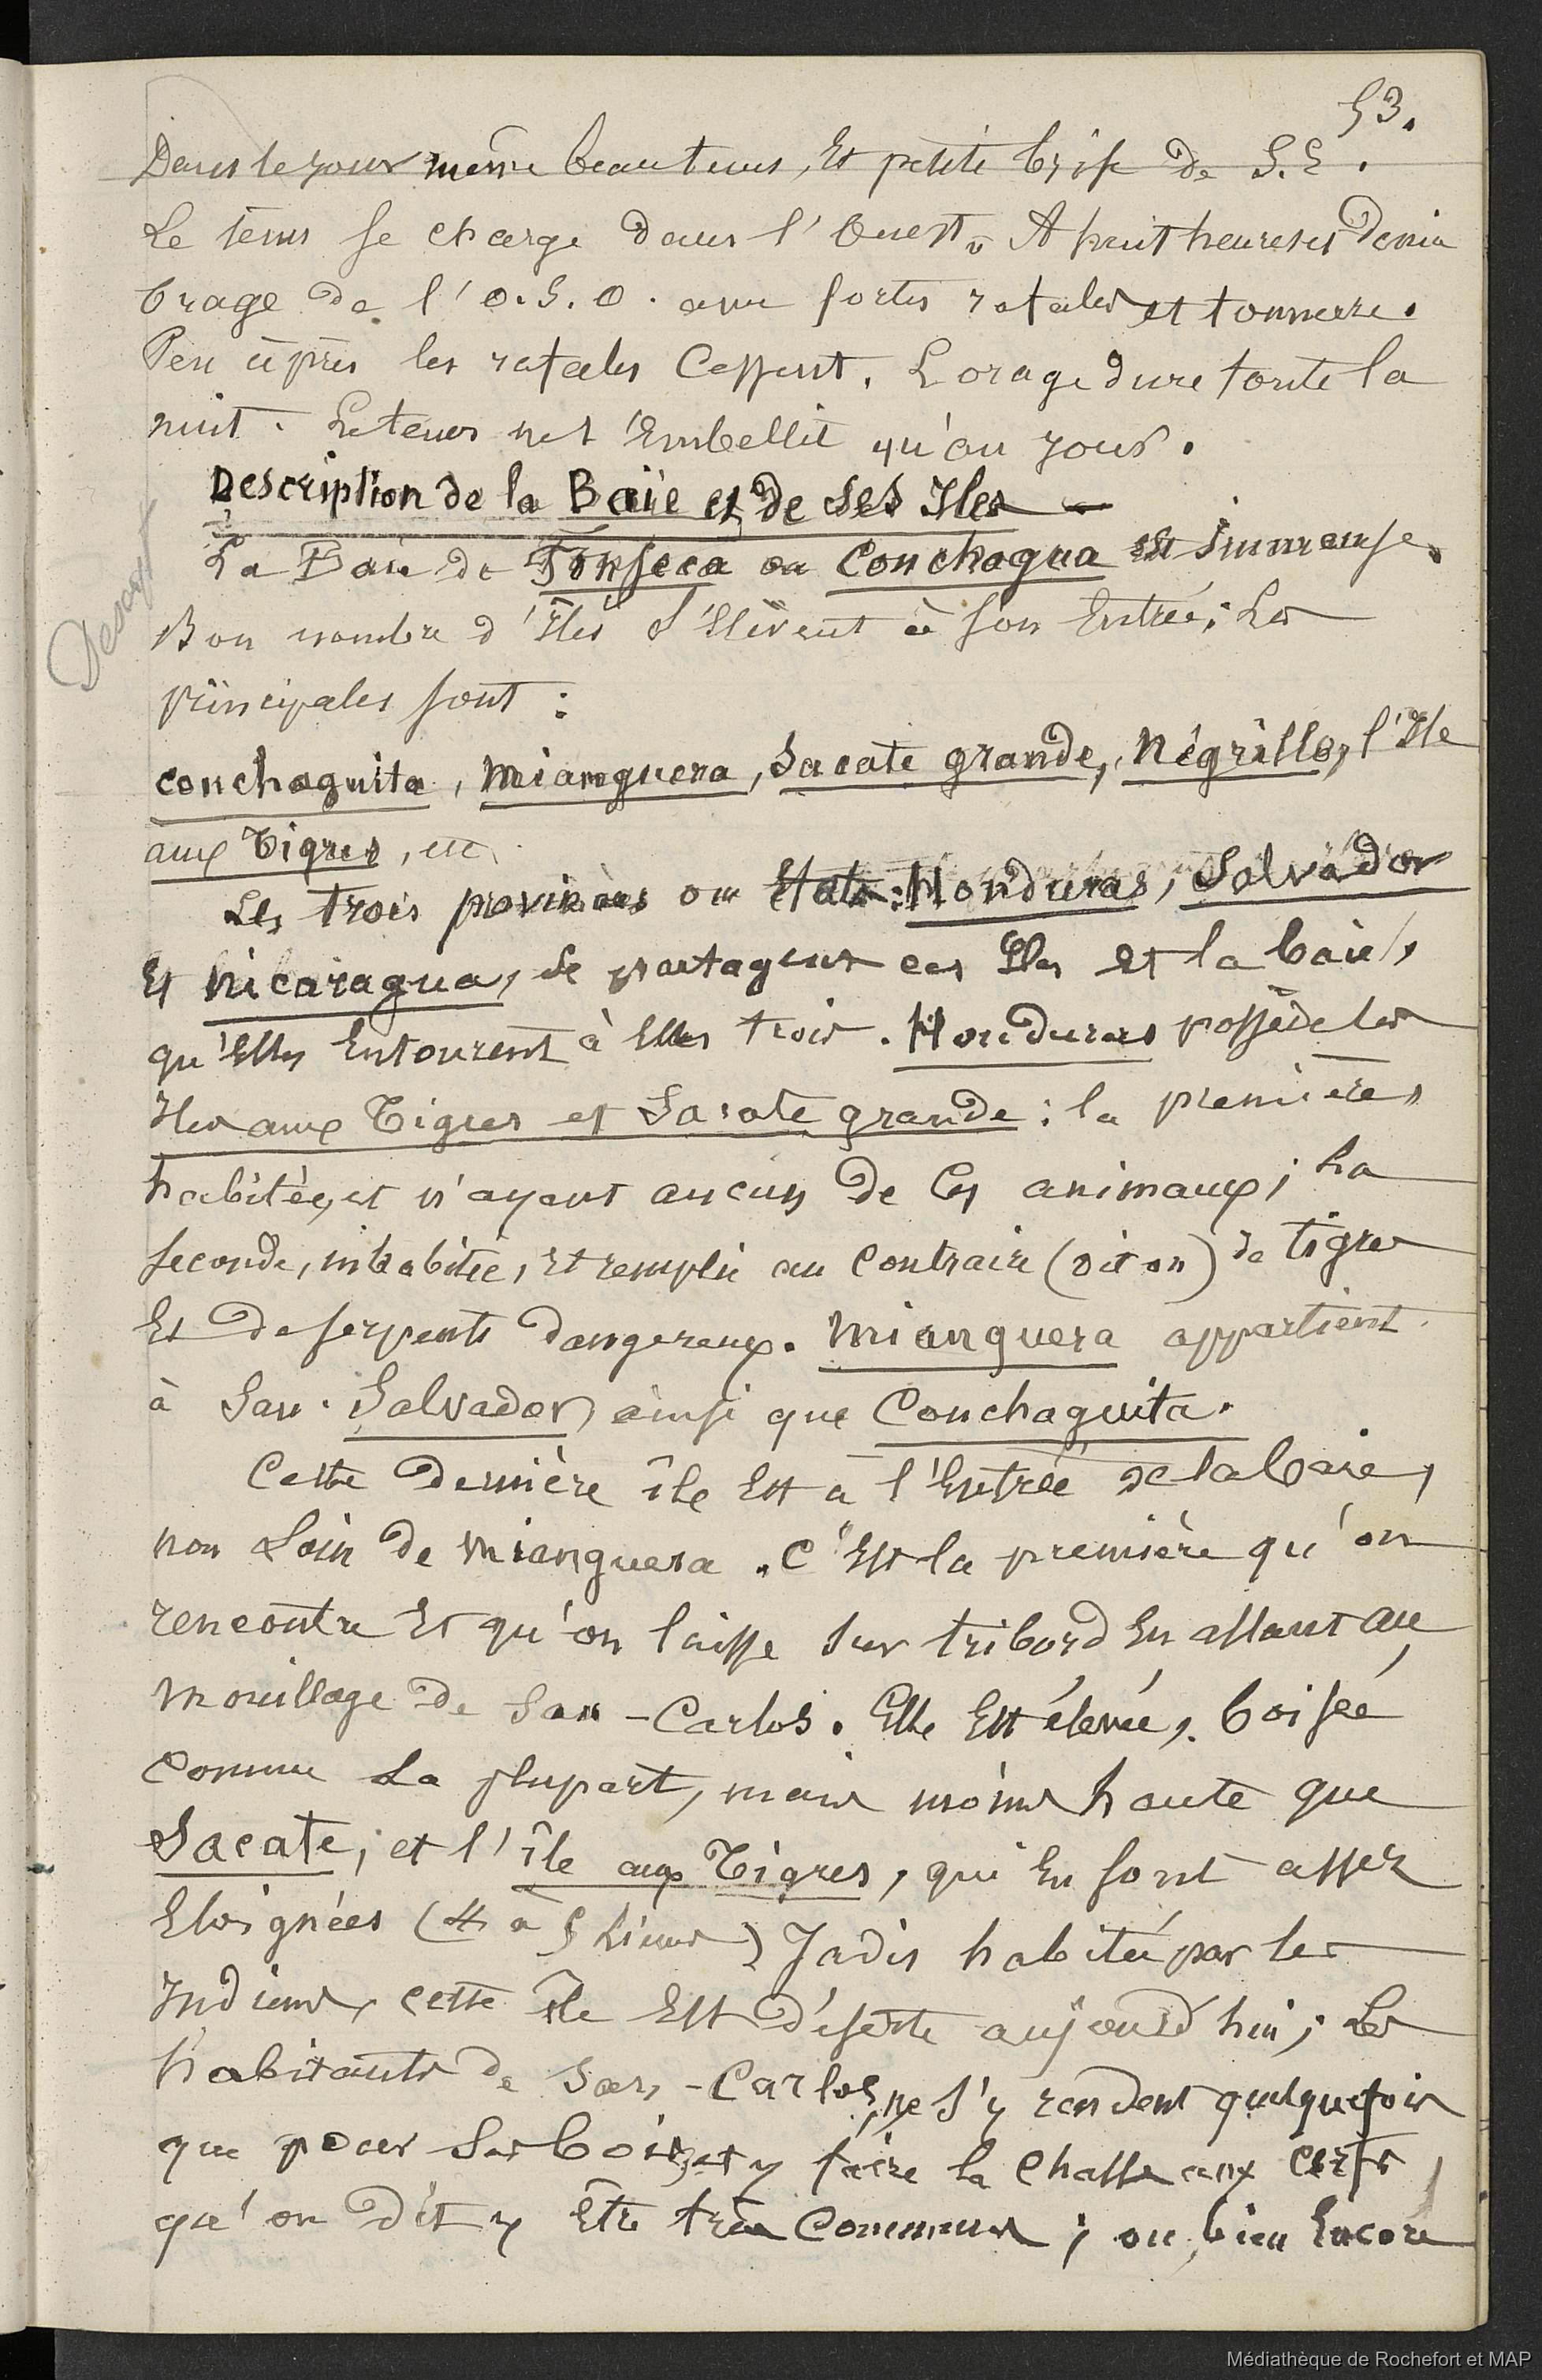 53.
Dans le jour même beau tems, Et petite brise de S.E.
Le tems se charge dans l'Ouest. A huit heures et demie
Orage de l'O.S.O. avec fortes rafales et tonnerre.
Peu après les rafales Cessent. L'orage dure toute la
nuit. Le tems ne s'Embellit qu'au jour.
Description de la Baïe et de Ses Iles —
Descript
La Baie de Fonseca ou Conchagua est immense.
Bon nombre d'Iles s'Elèvent à son Entrée; Les
principales sont :
Conchaguita, Mianguera, Sacate grande, Négrillo, l'Ile
aux Tigres, etc.
Les trois provinces ou Etats: Honduras, Salvador
Et Nicaragua, se partagent ces Iles Et la baie,
qu'Elles Entourent à Elles trois. Honduras possède les
Iles aux Tigres et Sacate grande : la première,
habitée, et n'ayant aucun de Ces animaux; La
Seconde, inhabitée, Et remplie au Contraire (dit on) de tigres
Et de serpents dangereux. Mianguera appartient
à San. Salvador, ainsi que Conchaguita.
Cette dernière île Est à l'Entrée de la baie,
non Loin de Mianguera. C'Est la première qu'on
rencontre Et qu'on laisse sur tribord En allant au
Mouillage de San-Carlos. Elle Est élevée, boisée
Comme La plupart, mais moins haute que
Sacate, et l'île aux Tigres, qui En sont assez
Eloignées (4 à 5 Lieues) Jadis habitée par les
Indiens, cette île Est déserte aujourd'hui; Les
habitants de San-Carlos, ne s'y rendent quelquefois
que pour Ses bois, et y faire la Chasse aux Cerfs,
qu'on dit y Être très Communs ; ou bien Encore
Médiathèque de Rochefort et MAP